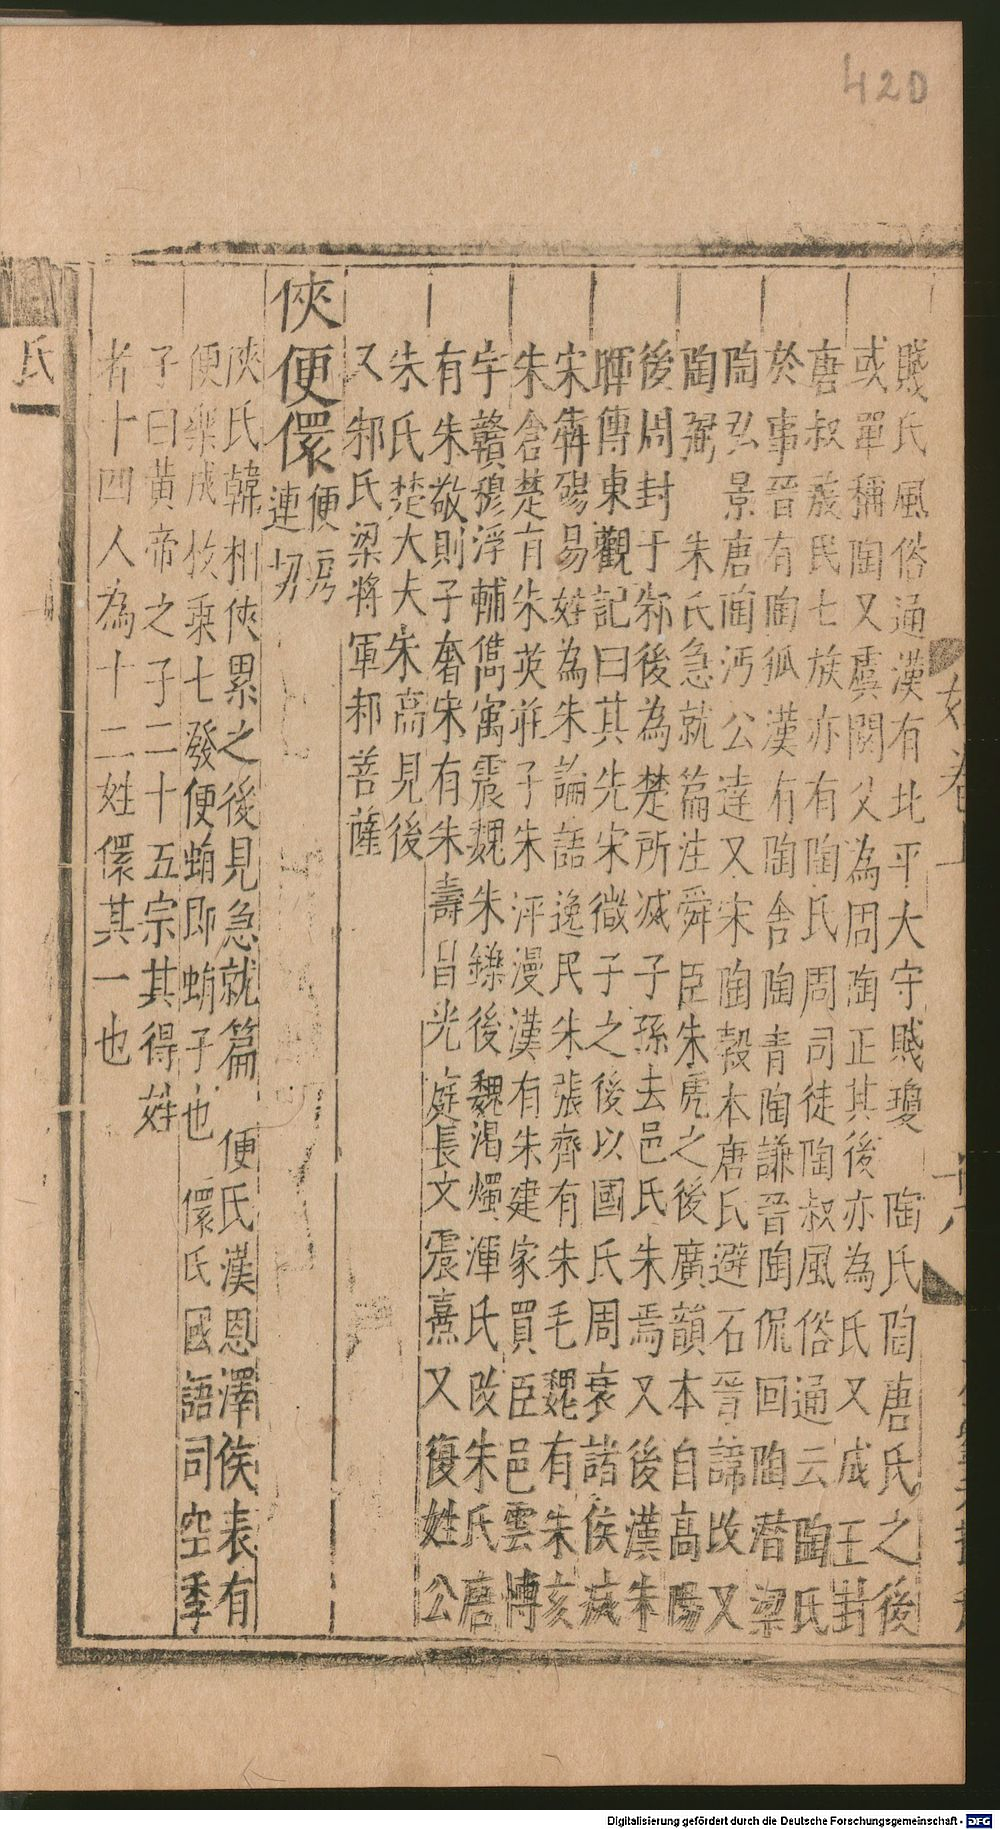 420
賤氏風俗通漢有北平大守賤瓊 陶氏陶唐氏之後
或單稱陶又虞閼父為周陶正其後亦為氏又成王封
唐叔懷氏七族亦有陶氏周司徒陶叔風俗通云陶氏
於事晉有陶狐漢有陶舍陶青陶謙晉陶侃回陶潛梁
陶弘景唐陶沔公達又宋陶穀本唐氏避石晉諱改又
陶弼 朱氏急就篇注舜臣朱虎之後廣韻本自高陽
後周封于邾後為楚所滅子孫去邑氏朱焉又後漢朱
暉傳東觀記曰其先宋微子之後以國氏周衰諸侯滅
宋犇碭易姓為朱論語逸民朱張齊有朱毛魏有朱亥
朱倉楚有朱英莊子朱泙漫漢有朱建家買臣邑雲博
宇贛穆浮輔儁寓震魏朱鑠後魏渴燭渾氏改朱氏唐
有朱敬則子奢宋有朱壽昌光庭長文震熹又復姓公
朱氏楚大夫朱高見後
又邾氏梁將軍邾菩薩
俠便儇
便沔
連切
俠氏韓相俠累之後見急就篇 便氏漢恩澤侯表有
便樂成枚乘七發便蜎即蜎子也 儇氏國語司空季
子曰黃帝之子二十五宗其得姓
者十四人為十二姓儇其一也
氏
Digitalisierung gefördert durch die Deutsche Forschungsgemeinschaft - DFG